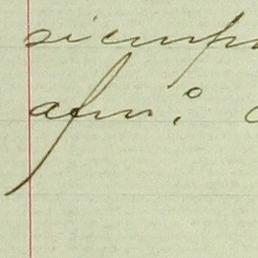 siemp
afmº.